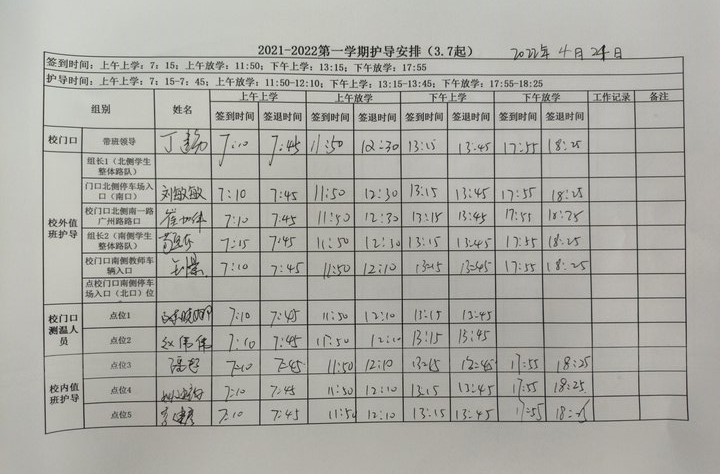 2021-2022第一学期护导安排（3.7起） 2022年4月24日
签到时间：上午上学：7：15；上午放学：11:50；下午上学：13:15；下午放学：17:55
护导时间：上午上学：7:15-7：45；上午放学：11:50-12:10；下午上学：13:15-13:45；下午放学：17:55-18:25
组别 姓名 上午上学 上午放学 下午上学 下午放学 工作记录 备注
签到时间 签退时间 签到时间 签退时间 签到时间 签退时间 签到时间 签退时间
校门口 带班领导 7:10 7:45 11:50 12:30 13:15 13:45 17:55 18:25
校外值班护导
组长1（北侧学生
整体路队）
门口北侧停车场入
口（南口） 刘敏敏 7:10 7:45 11:50 12:30 13:15 13:45 17:55 18:25
校门口北侧南一路
广州路路口 7:10 7:45 11:50 12:30 13:15 13:45 17:55 18:25
组长2（南侧学生
整体路队） 7:15 7:45 11:50 12:10 13:15 13:45 17:55 18:25
校门口南侧教师车
辆入口 7:10 7:45 11:50 12:10 13:15 13:45 17:55 18:25
点校门口南侧停车
场入口（北口）位
校门口
测温人员
点位1 7:10 7:45 11:50 12:10 13:15 13:45
点位2 赵伟伟 7:10 7:45 12:10 13:15 13:45
校内值
班护导
点位3 7:10 7:45 11:50 12:10 13:15 17:55 18:25
点位4 7:10 7:45 11:50 12:10 13:15 13:45 17:55 18:25
点位5 7:10 7:45 12:10 13:15 13:45 17:55 18:25